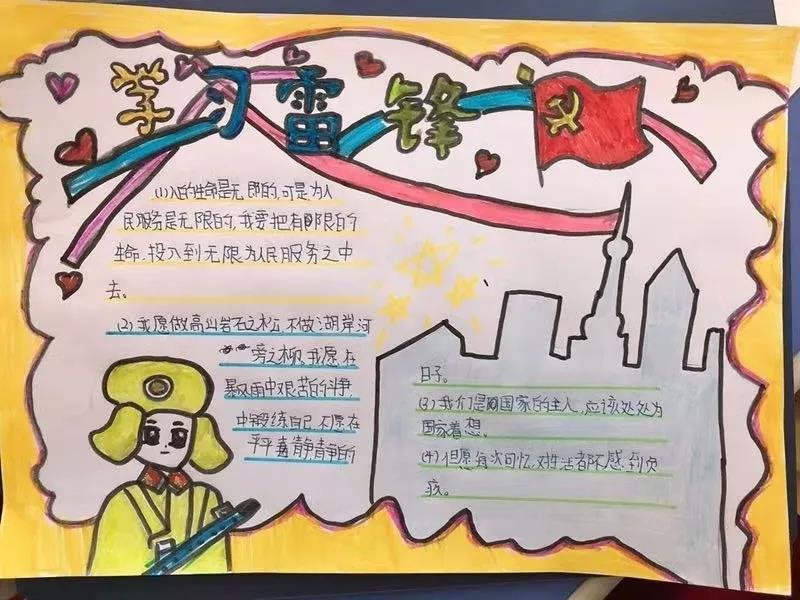 学习雷锋
(1)人的生命是无限的,可是为人
民服务是无限的,我要把有限的
生命,投入到无限为人民服务之中
去。
(2)我愿做高山岩石之松,不做湖岸河
旁之柳。我愿在
暴风雨中艰苦的斗争
中锻练自己,不愿在
平平静静的
日子。
(3)我们是国家的主人,应该处处为
国家着想。
(4)但愿每次回忆,对生活都不感到负
疚。